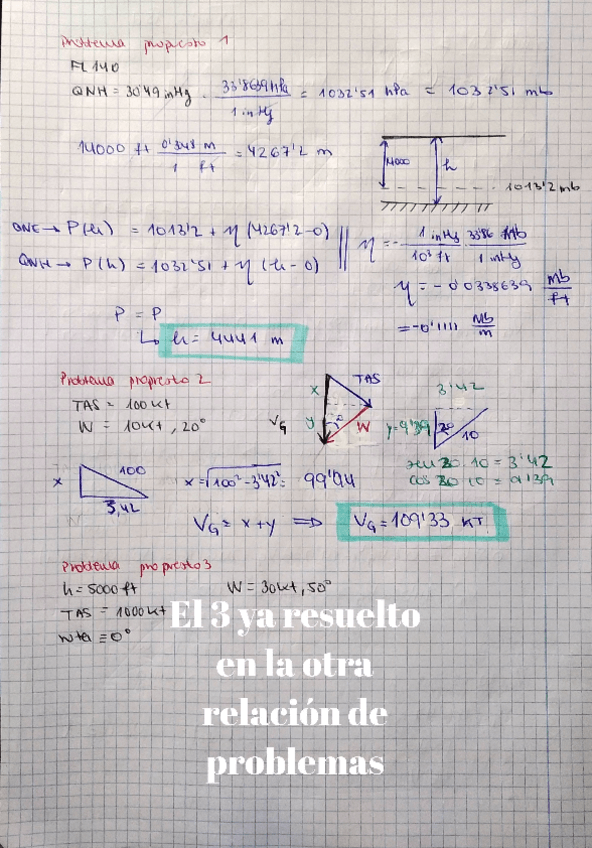 Problema propuesto 1
FL 140
QNH = 30'49 inHg · 33'8639 hPa / 1 inHg = 1032'51 hPa = 1032'51 mb
14000 ft · 0'348 m / 1 ft = 4267'2 m
4000
h
1013'2 mb
QNE → P(h) = 1013'2 + η (4267'2 - 0)
QNH → P(h) = 1032'51 + η (h - 0)
η = - 1 inHg / 10³ ft · 33'86 mb / 1 inHg
η = - 0'0338639 mb/ft
= -0'1111 mb/m
P = P
↳ h = 4441 m
Problema propuesto 2
TAS = 100 kt
W = 10 kt, 20°
x
TAS
VG
y
20°
W
3'42
y = 9'39
20
10
x
100
3,42
x = √100² - 3'42² = 99'94
sen 20 · 10 = 3'42
cos 20 · 10 = 9'39
VG = x + y ⇒ VG = 109'33 KT
Problema propuesto 3
h = 5000 ft
W = 30 kt, 50°
TAS = 1000 kt
≡ 0°
El 3 ya resuelto
en la otra
relación de
problemas